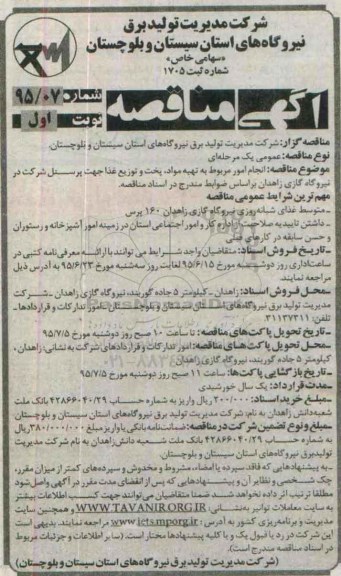 شرکت مدیریت تولید برق
نیروگاه‌های استان سیستان و بلوچستان
«سهامی خاص»
شماره ثبت ۱۷۰۵
آگهی مناقصه
شماره ۹۵/۰۷
نوبت اول
مناقصه گزار: شرکت مدیریت تولید برق نیروگاه‌های استان سیستان و بلوچستان.
نوع مناقصه: عمومی یک مرحله‌ای
موضوع مناقصه: انجام امور مربوط به تهیه مواد، پخت و توزیع غذا جهت پرسنل شرکت در
نیروگاه گازی زاهدان براساس ضوابط مندرج در اسناد مناقصه.
مهم‌ترین شرایط عمومی مناقصه
ـ متوسط غذای شبانه‌روزی نیروگاه گازی زاهدان ۱۶۰ پرس
ـ داشتن تاییدیه صلاحیت از اداره کار و امور اجتماعی استان در زمینه امور آشپزخانه و رستوران
و حسن سابقه در کارهای قبلی
ـ تاریخ فروش اسناد: متقاضیان واجد شرایط می توانند با ارائه معرفی‌نامه کتبی در
ساعات اداری روز دوشنبه مورخ ۹۵/۶/۱۵ لغایت روز سه‌شنبه مورخ ۹۵/۶/۲۳ به آدرس ذیل
مراجعه نمایند.
ـ محل فروش اسناد: زاهدان ـ کیلومتر ۵ جاده گوربند، نیروگاه گازی زاهدان ـ شرکت
مدیریت تولید برق نیروگاه‌های استان سیستان و بلوچستان ـ امور تدارکات و قراردادها ـ
تلفن: ۳۱۱۳۷۳۱۱
ـ تاریخ تحویل پاکت‌های مناقصه: تا ساعت ۱۰ صبح روز دوشنبه مورخ ۹۵/۷/۵
ـ محل تحویل پاکت‌های مناقصه: امور تدارکات و قراردادهای شرکت به نشانی: زاهدان،
کیلومتر ۵ جاده گوربند، نیروگاه گازی زاهدان
ـ تاریخ بازگشایی پاکت‌ها: ساعت ۱۱ صبح روز دوشنبه مورخ ۹۵/۷/۵
ـ مدت قرارداد: یک سال خورشیدی
ـ مبلغ خرید اسناد: ۲۰۰/۰۰۰ ریال واریز به شماره حساب ۴۲۸۶۶۰۴۰/۲۹ بانک ملت
شعبه دانش زاهدان به نام: شرکت مدیریت تولید برق نیروگاه‌های استان سیستان و بلوچستان
ـ مبلغ و نوع تضمین شرکت در مناقصه: ضمانت‌نامه بانکی یا واریز مبلغ ۳۸۰/۰۰۰/۰۰۰ ریال
به شماره حساب ۴۲۸۶۶۰۴۰/۲۹ بانک ملت شعبه دانش زاهدان به نام شرکت مدیریت
تولید برق نیروگاه‌های استان سیستان و بلوچستان.
ـ به پیشنهادهایی که فاقد سپرده یا امضاء، مشروط و مخدوش و سپرده‌های کمتر از میزان مقرر،
چک شخصی و نظایر آن و پیشنهادهایی که پس از انقضای مدت مقرر در آگهی واصل شود
مطلقا ترتیب اثر داده نخواهد شد. ضمنا متقاضیان می‌توانند جهت کسب اطلاعات بیشتر
به سایت معاملات توانیر به نشانی: WWW.TAVANIR.ORG.IR و همچنین سایت
مدیریت و برنامه‌ریزی کشور به آدرس: www.iets.mporg.ir مراجعه نمایند. بدیهی است
این شرکت در رد یا قبول یک و یا کلیه پیشنهادها مختار است. (سایر اطلاعات و جزئیات مربوط
در اسناد مناقصه مندرج است).
(شرکت مدیریت تولید برق نیروگاه‌های استان سیستان و بلوچستان)